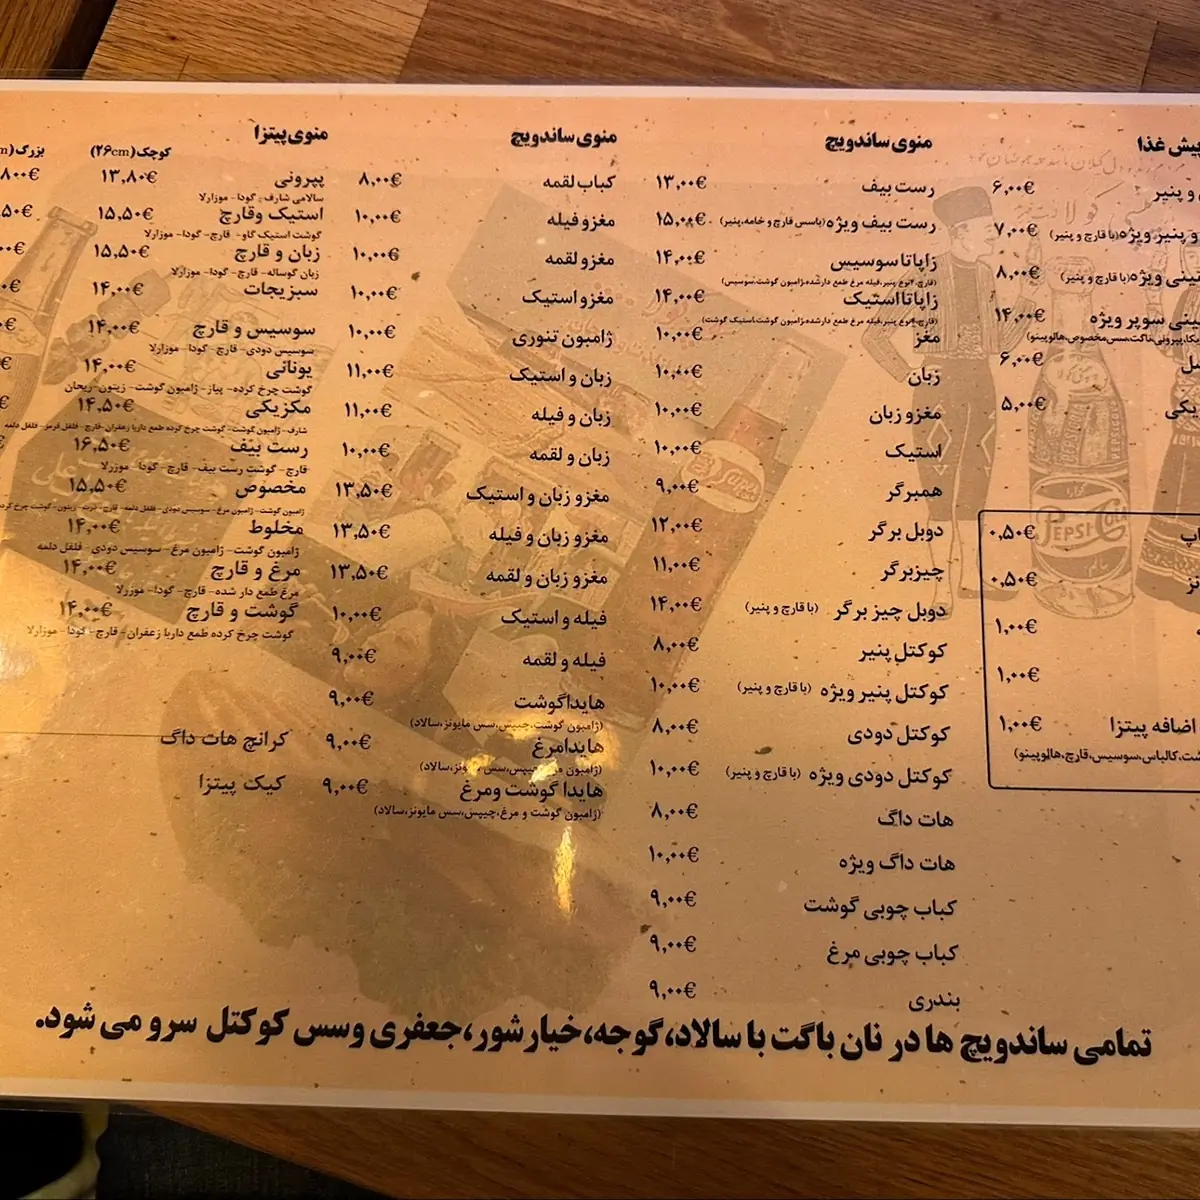 پیش غذا
و پنیر ۶,۰۰€
و پنیر ویژه (با قارچ و پنیر) ۷,۰۰€
ویژه (با قارچ و پنیر) ۸,۰۰€
سوپر ویژه ۱۴,۰۰€
پپرونی،ناگت،سس مخصوص،هالوپینو)
۶,۰۰€
۵,۰۰€
۰,۵۰€
۰,۵۰€
۱,۰۰€
۱,۰۰€
اضافه پیتزا ۱,۰۰€
کالباس،سوسیس،قارچ،هالوپینو)
منوی ساندویچ
رست بیف ۱۳,۰۰€
رست بیف ویژه (باسس قارچ و خامه،پنیر) ۱۵,۰۰€
زاپاتا سوسیس ۱۴,۰۰€
(قارچ،۲نوع پنیر،فیله مرغ طعم دارشده،ژامبون گوشت،سوسیس)
زاپاتا استیک ۱۴,۰۰€
(قارچ،۲نوع پنیر،فیله مرغ طعم دارشده،ژامبون گوشت،استیک گوشت)
مغز ۱۰,۰۰€
زبان ۱۰,۰۰€
مغز و زبان ۱۰,۰۰€
استیک ۱۰,۰۰€
همبرگر ۹,۰۰€
دوبل برگر ۱۲,۰۰€
چیزبرگر ۱۱,۰۰€
دوبل چیز برگر (با قارچ و پنیر) ۱۴,۰۰€
کوکتل پنیر ۸,۰۰€
کوکتل پنیر ویژه (با قارچ و پنیر) ۱۰,۰۰€
کوکتل دودی ۸,۰۰€
کوکتل دودی ویژه (با قارچ و پنیر) ۱۰,۰۰€
هات داگ ۸,۰۰€
هات داگ ویژه ۱۰,۰۰€
کباب چوبی گوشت ۹,۰۰€
کباب چوبی مرغ ۹,۰۰€
بندری ۹,۰۰€
منوی ساندویچ
کباب لقمه ۸,۰۰€
مغز و فیله ۱۰,۰۰€
مغز و لقمه ۱۰,۰۰€
مغز و استیک ۱۰,۰۰€
ژامبون تنوری ۱۰,۰۰€
زبان و استیک ۱۱,۰۰€
زبان و فیله ۱۱,۰۰€
زبان و لقمه ۱۰,۰۰€
مغز و زبان و استیک ۱۳,۵۰€
مغز و زبان و فیله ۱۳,۵۰€
مغز و زبان و لقمه ۱۳,۵۰€
فیله و استیک ۱۰,۰۰€
فیله و لقمه ۹,۰۰€
هایدا گوشت ۹,۰۰€
(ژامبون گوشت،چیپس،سس مایونز،سالاد)
هایدا مرغ ۹,۰۰€
(ژامبون مرغ،چیپس،سس مایونز،سالاد)
هایدا گوشت ومرغ ۹,۰۰€
(ژامبون گوشت و مرغ،چیپس،سس مایونز،سالاد)
منوی پیتزا
کوچک (۲۶cm) بزرگ
پپرونی ۱۳,۸۰€
سالامی شارف- گودا- موزارلا
استیک وقارچ ۱۵,۵۰€
گوشت استیک گاو- قارچ- گودا- موزارلا
زبان و قارچ ۱۵,۵۰€
زبان گوساله- قارچ- گودا- موزارلا
سبزیجات ۱۴,۰۰€
سوسیس و قارچ ۱۴,۰۰€
سوسیس دودی- قارچ- گودا- موزارلا
یونانی ۱۴,۰۰€
گوشت چرخ کرده- پیاز- ژامبون گوشت- زیتون- ریحان
مکزیکی ۱۴,۵۰€
شارف- ژامبون گوشت- گوشت چرخ کرده طعم داربا زعفران-قارچ- فلفل قرمز- فلفل دلمه
رست بیف ۱۶,۵۰€
قارچ- گوشت رست بیف- قارچ- گودا- موزرلا
مخصوص ۱۵,۵۰€
ژامبون گوشت- ژامبون مرغ- سوسیس دودی- فلفل دلمه- قارچ- ذرت- زیتون- گوشت چرخ کرده
مخلوط ۱۴,۰۰€
ژامبون گوشت- ژامبون مرغ- سوسیس دودی- فلفل دلمه
مرغ و قارچ ۱۴,۰۰€
مرغ طعم دار شده- قارچ- گودا- موزرلا
گوشت و قارچ ۱۴,۰۰€
گوشت چرخ کرده طعم داربا زعفران- قارچ- گودا- موزارلا
کرانچ هات داگ
کیک پیتزا
تمامی ساندویچ ها در نان باگت با سالاد،گوجه،خیارشور،جعفری وسس کوکتل سرو می شود.